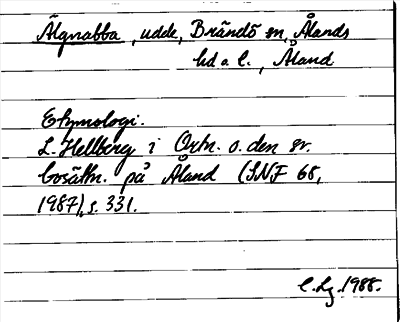 Älgnabba, udde, Brändö sn, Ålands
hd o l., Åland
Etymologi.
L. Hellberg i Ortn. o. den sv.
bosättn. på Åland (SNF 68,
1987), s. 331.
C. Lg. 1988.